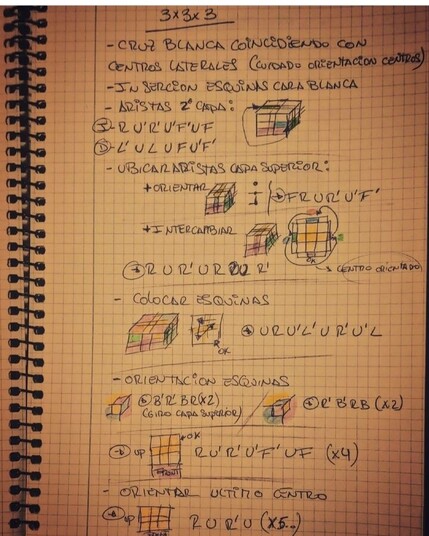 3x3x3
- CRUZ BLANCA COINCIDIENDO CON
CENTROS LATERALES (CUIDADO ORIENTACION CENTROS)
- INSERCION ESQUINAS CARA BLANCA
- ARISTAS 2ª CAPA:
I- R U' R' U' F' U F
D- L' U L U F U' F'
- UBICAR ARISTAS CAPA SUPERIOR:
+ ORIENTAR F R U R' U' F'
+ INTERCAMBIAR
OK
CENTRO ORIENTADO
R U R' U R U R'
- COLOCAR ESQUINAS
U R U' L' U R' U' L
OK
- ORIENTACION ESQUINAS
B' R' B R (x2)
(GIRO CAPA SUPERIOR)
R' B' R B (x2)
UP
OK
FRONT
R U' R' U' F' U F (x4)
- ORIENTAR ULTIMO CENTRO
UP
R U R' U (x5...)